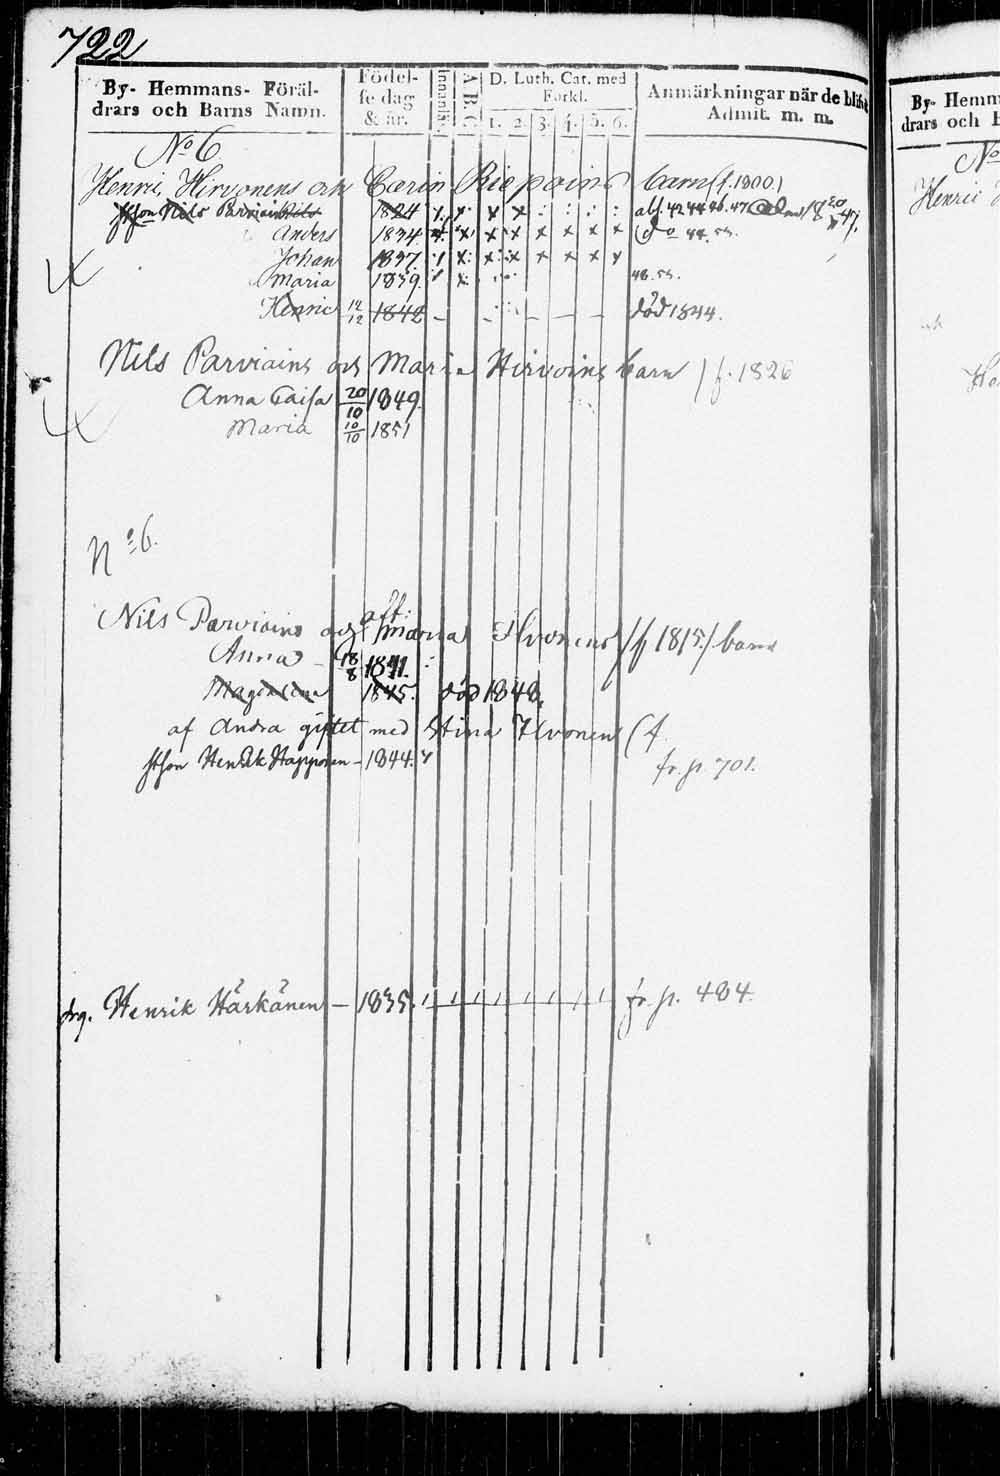 722
By- Hemmans- Föräl-
drars och Barns Namn.
Födel-
se dag
& år.
Innanläs.
A B C
D. Luth. Cat. med
Förkl.
1. 2. 3. 4. 5. 6.
Anmärkningar när de blifv
Admit. m. m.
No 6
Henric Hirvonens och Carin Riepoins barn (f. 1800.)
Nils Parviain Nils 1824 x x x x 42 44 46. 47
Anders 1834 x x x x x x x x do 44. 53.
Johan 1837 x x x x x x x
Maria 1839. 48. 53.
Henric 12/12 1842 död 1844.
Nils Parviains och Maria Hirvoins barn / f. 1826
Anna Caisa 20/10 1849.
Maria 10/10 1851
No 6.
Nils Parviains och aff: Maria Ilvonens / f 1815 / barn
Anna - 18/8 1841.
Magdalena 1845. död 1848.
af Andra giftet med Stina Ilvonen (f.
Henrik Happonen - 1844. fr. p. 701.
drg. Henrik Härkänen - 1835. fr. p. 484.
By- Hemm
drars och B
No
Henric